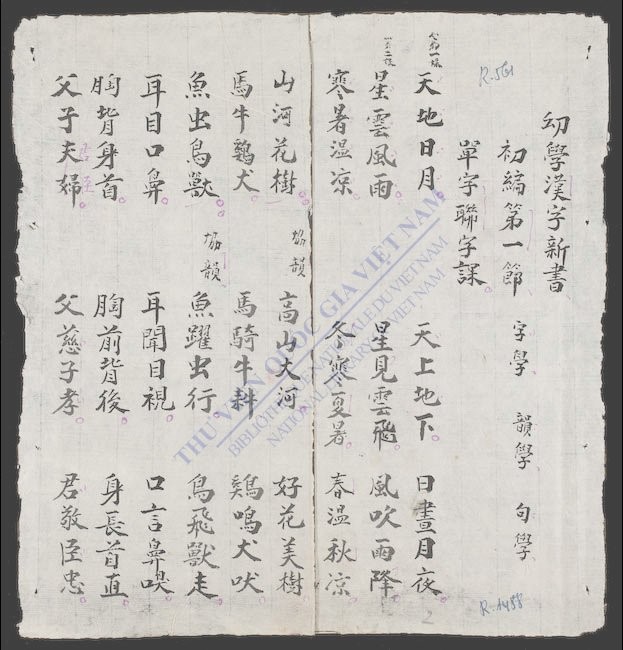 R.561
幼學漢字新書
初編第一節 字學 韻學 句學
單字聯字課
天地日月 天上地下 日晝月夜
星雲風雨 星見雲飛 風吹雨降
寒暑温凉 冬寒夏暑 春温秋凉
山河花樹 協韻 高山大河 好花美樹
馬牛鷄犬 馬騎牛耕 鷄鳴犬吠
魚虫鳥獸 協韻 魚躍虫行 鳥飛獸走
耳目口鼻 耳聞目視 口言鼻嗅
胸背身首 胸前背後 身長首直
父子夫婦 君臣 父慈子孝 君敬臣忠
R.1488
2
THƯ VIỆN QUỐC GIA VIỆT NAM
BIBLIOTHÈQUE NATIONALE DU VIETNAM
NATIONAL LIBRARY OF VIETNAM